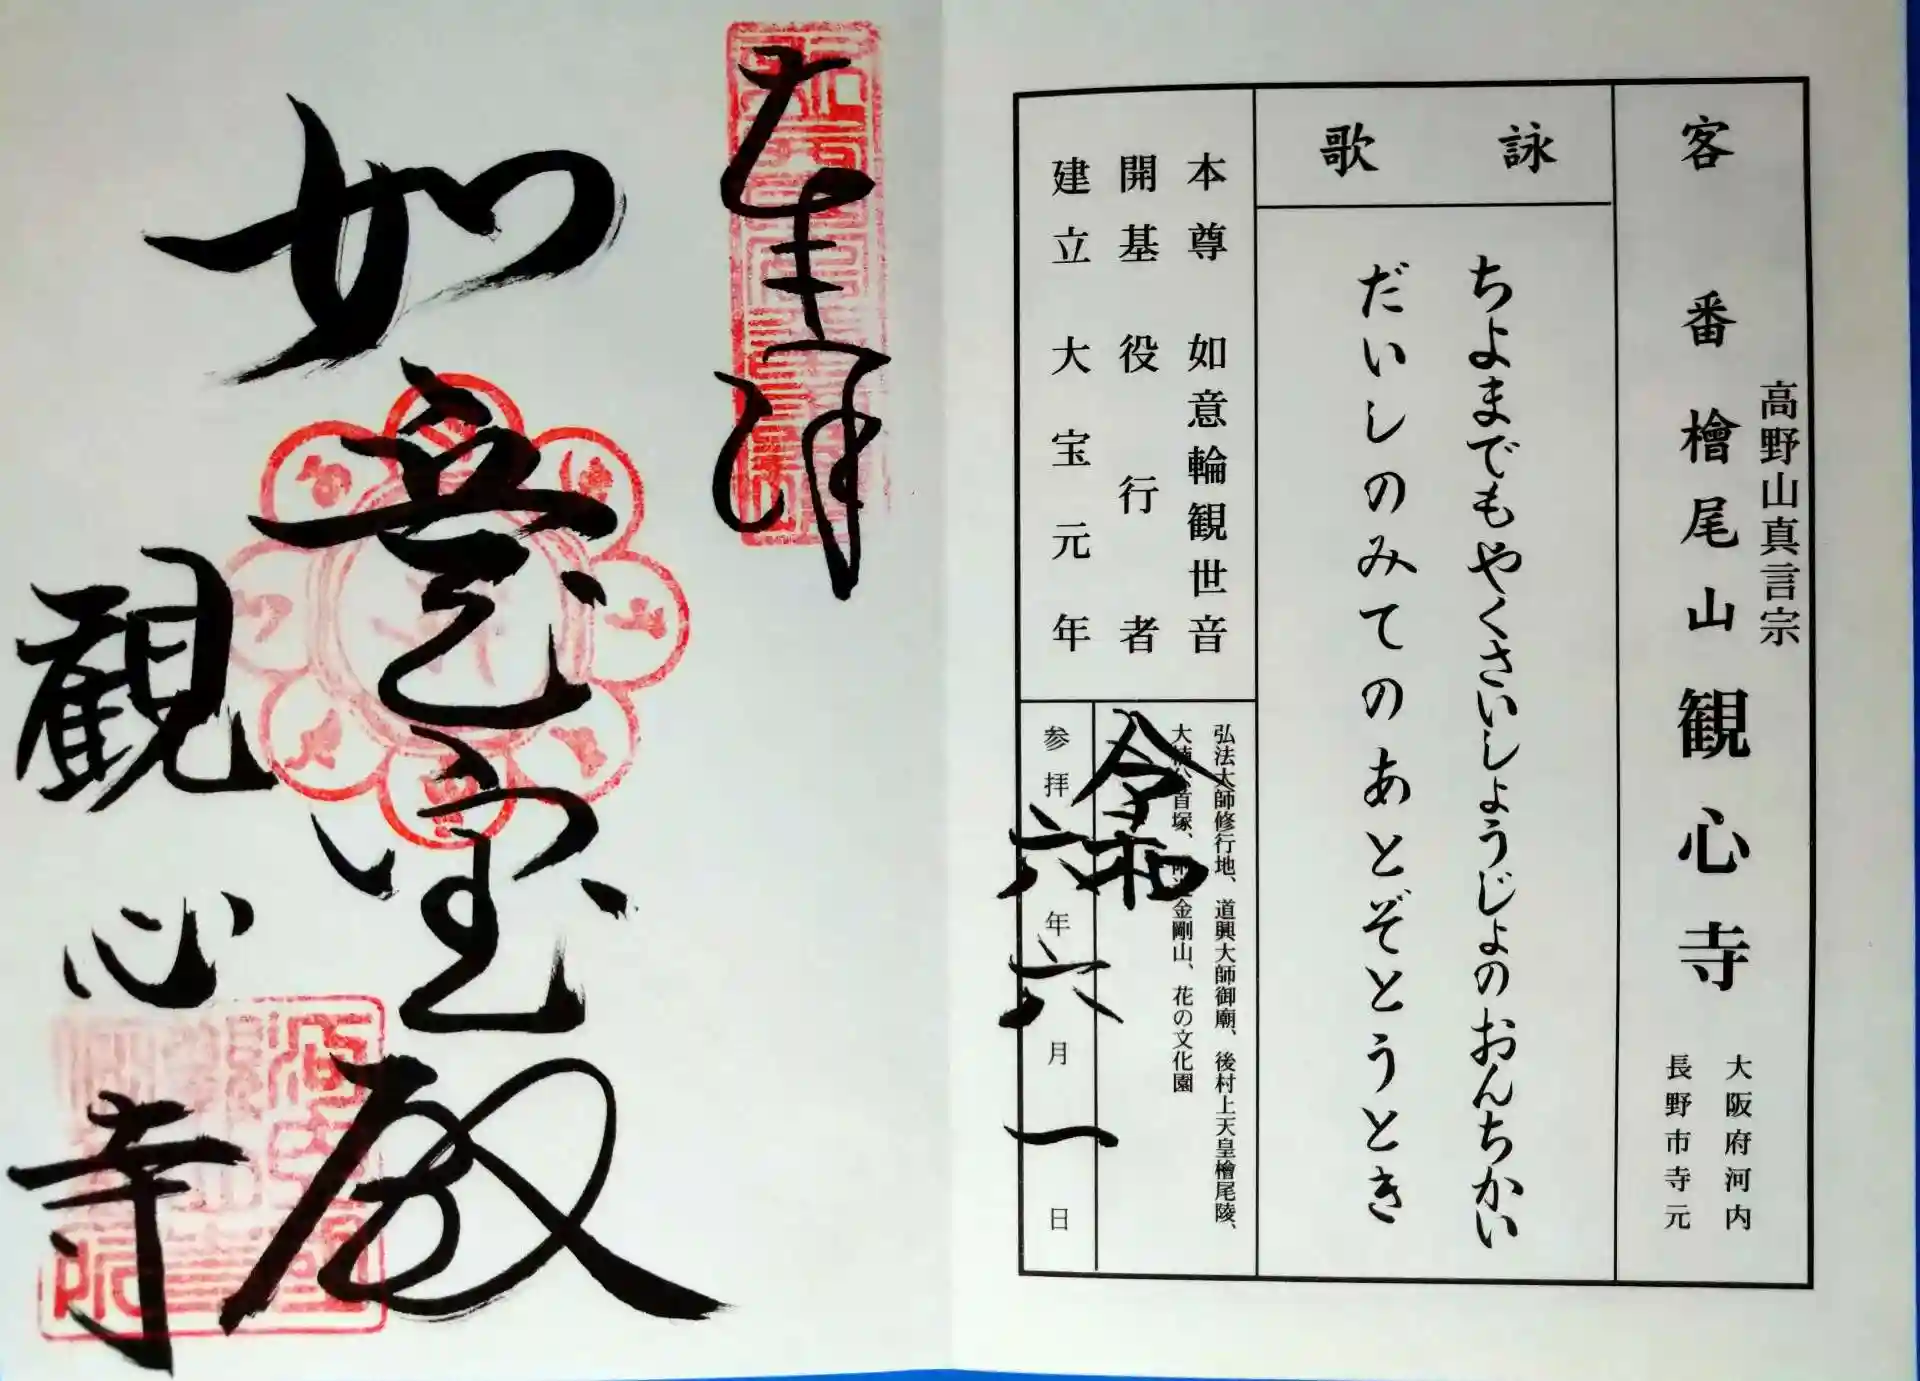 高野山真言宗
客番 檜尾山 観心寺
大阪府河内
長野市寺元
詠歌
ちよまでもやくさいしょうじょのおんちかい
だいしのみてのあとぞとうとき
本尊 如意輪観世音
開基 役行者
建立 大宝元年
弘法大師修行地、道興大師御廟、後村上天皇檜尾陵、
大楠公首塚、金剛山、花の文化園
令和
参拝 六年 六月 一日
奉拝
如意宝殿
観心寺